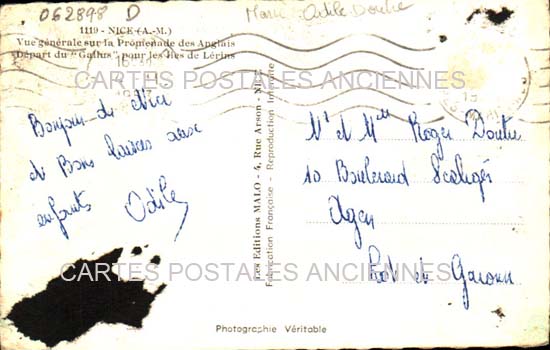 062898 D
Marie-Odile Doutre
1119 - NICE (A.-M.)
Vue générale sur la Promenade des Anglais
Départ du "Gallus" pour les Iles de Lérins
CARTES POSTALES ANCIENNES
Bonjour de Nice
et Bons baisers aux
enfants Odile
Les Editions MALO - 4, Rue Arson - Nice
Fabrication Française - Reproduction Interdite
Mr et Mme Roger Doutre
10 Boulevard Scaliger
Agen
Lot et Garonne
CARTES POSTALES ANCIENNES
Photographie Véritable